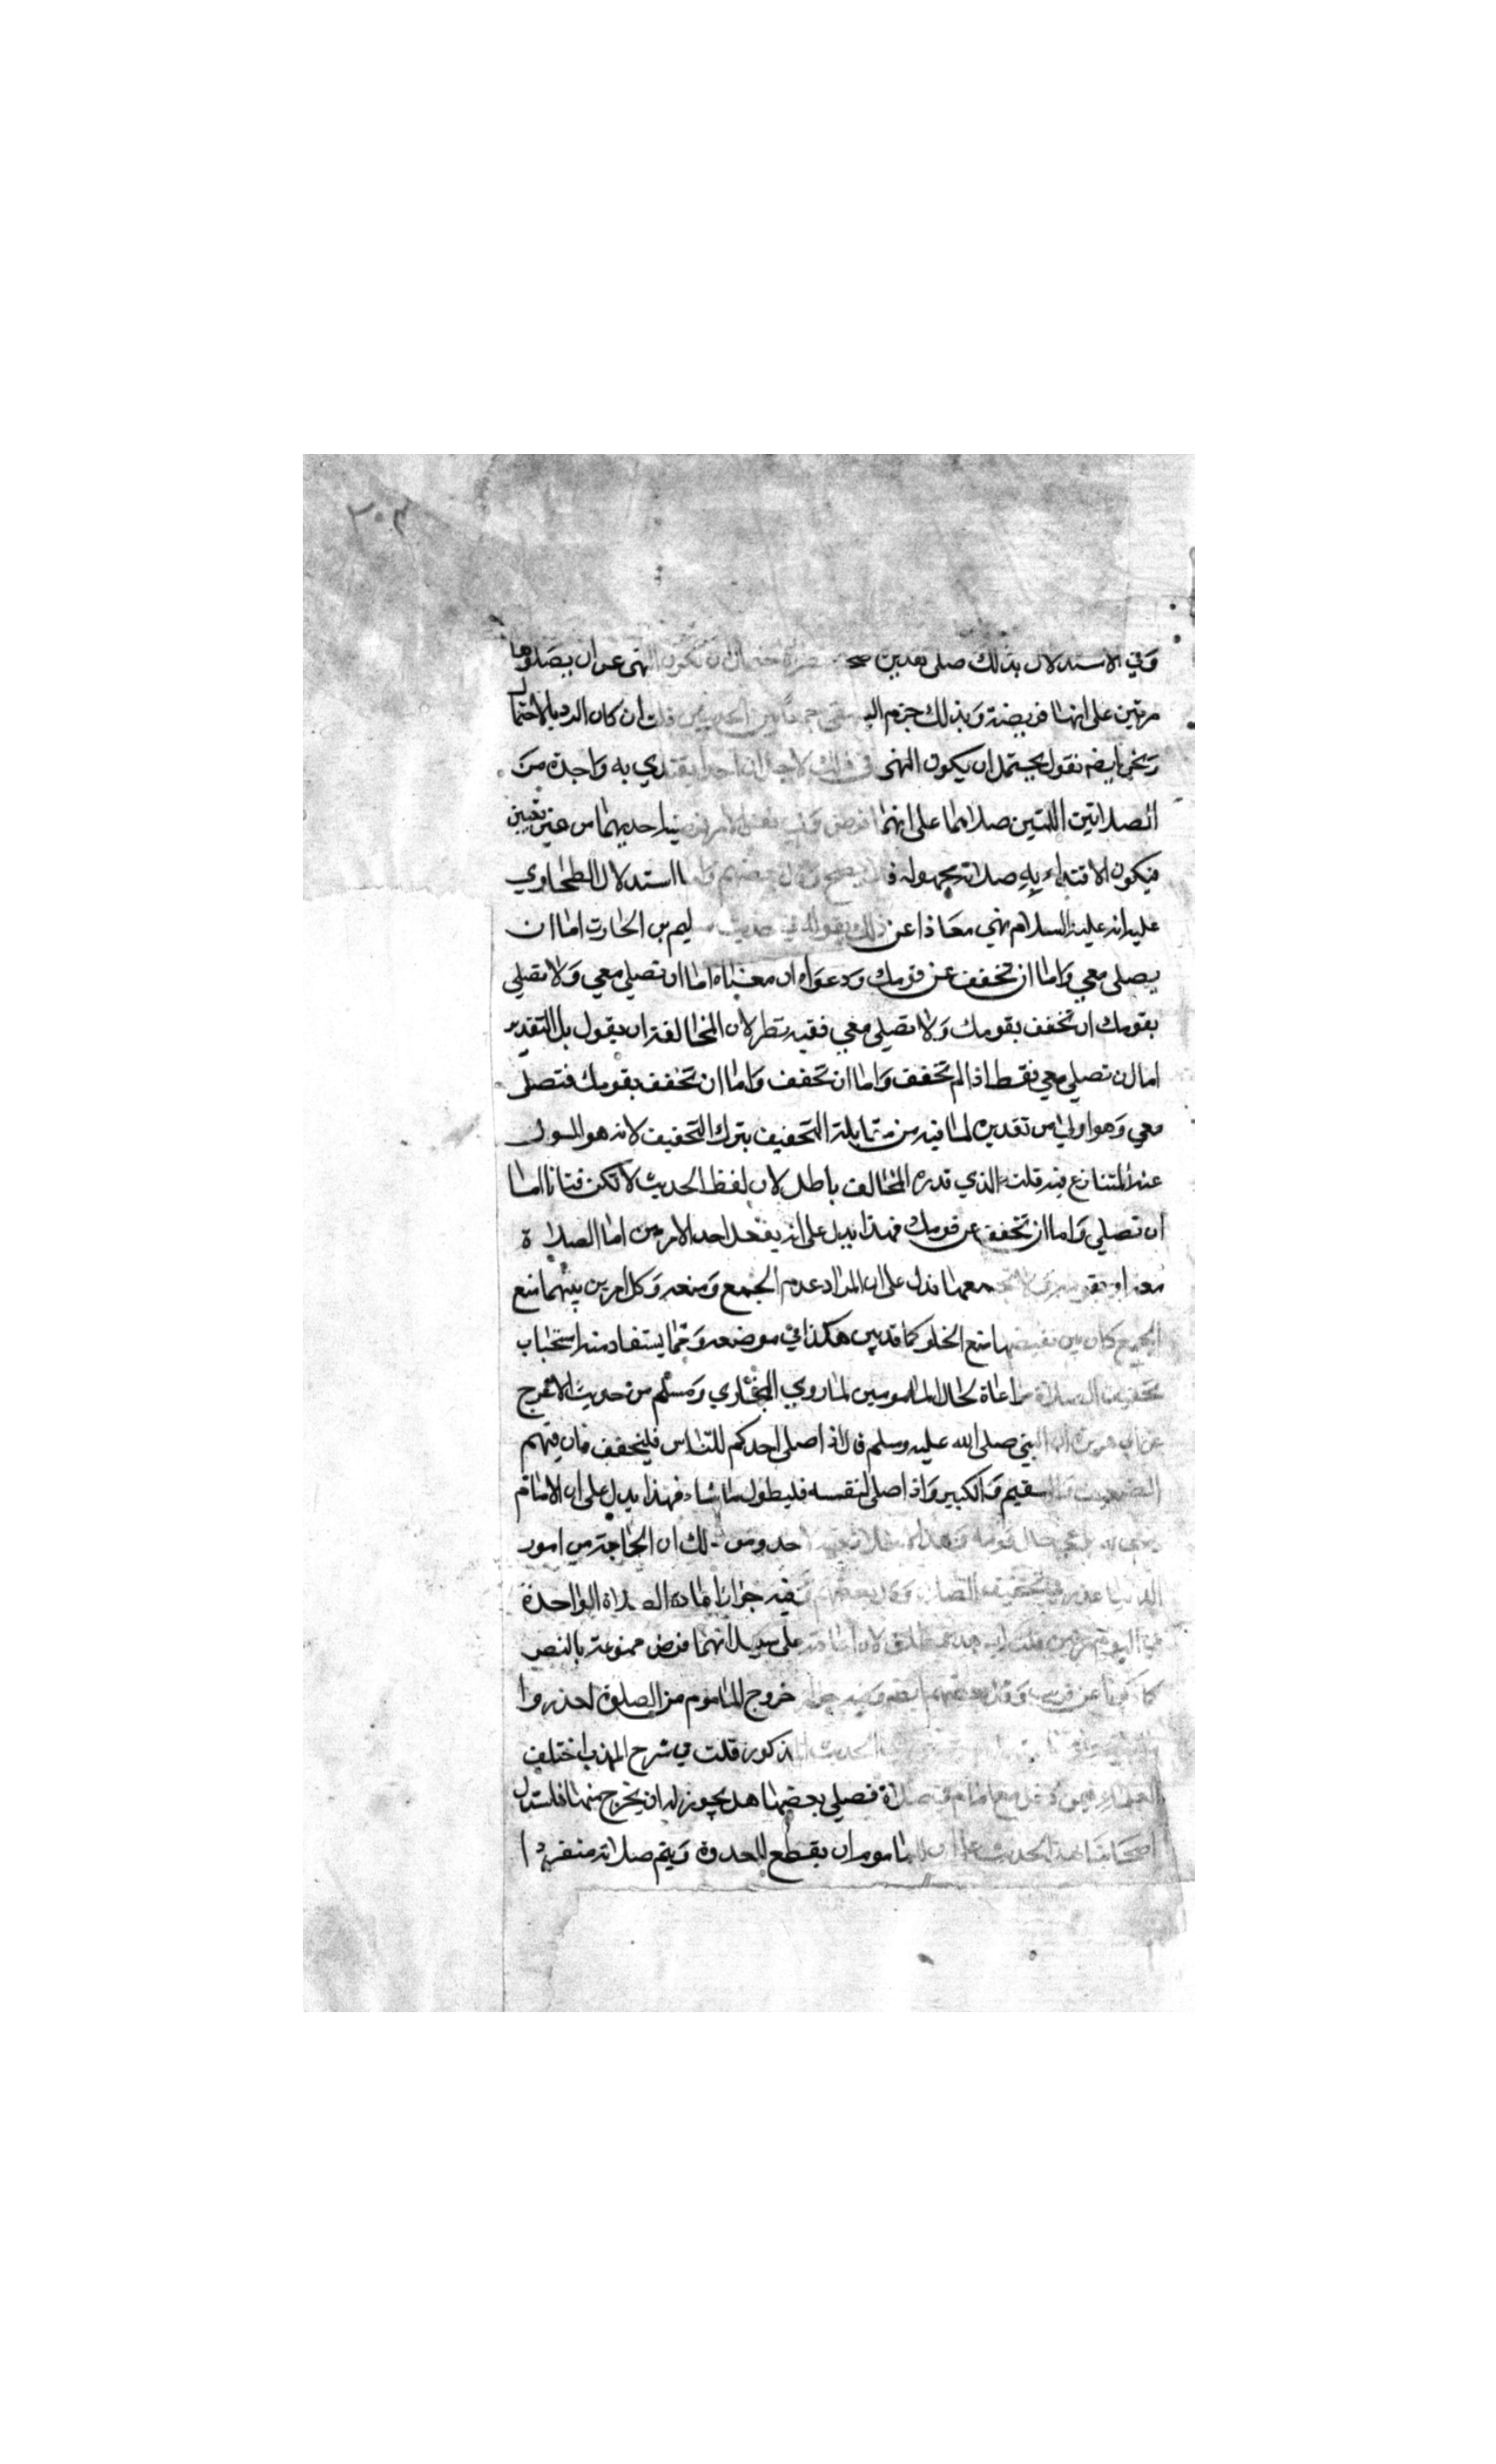 ٣٠٣
وفي الاستدلال بذلك على تقدير صحته نظر لاحتمال ان يكون النهى عن ان يصلوها
مرتين على انها فريضة وبذلك جزم البيهقى جمعا بين الحديثين قلت ان كان الرد بالاحتمال
ونحن ايضا نقول يحتمل ان يكون النهى في ذلك لاجل ان احدا يقتدي به واحدة من
الصلاتين اللتين صلاهما على انهما فرض وفي نفس الامر فرضيا احديهما من غير تعيين
فيكون الاقتداء به صلاة مجهولة فلا يصح وقال بعضهم واما استدلال الطحاوي
عليه انه عليه السلام نهي معاذا عن ذلك بقوله في حديث سليم بن الحارث اما ان
يصلى معي واما ان تخفف عن قومك ودعواه ان معناه اما ان تصلي معي ولا تصلي
بقومك ان تخفف بقومك ولا تصلي معي ففيه نظر لان المخالفة ان يقول بل التقدير
اما ان تصلي معي فقط اذا لم تخفف واما ان تخفف واما ان تخفف بقومك فتصلى
معي وهو اولي من تقديره لما فيه من مقابلة التخفيف بترك التخفيف لانه هو المسول
عنه المتنازع فيه قلت الذي قدره المخالف باطل لان لفظ الحديث لا تكن فتانا اما
ان تصلي واما ان تخفف عن قومك فهذا يدل على انه يفعل احد الامرين اما الصلاة
معه او بقومه ولا يجمعهما فدل على ان المراد عدم الجمع ومنعه وكل امرين بينهما منع
الجمع كان بين نقيضيهما منع الخلو كما قد بين هكذا في موضعه ومما يستفاد منه استحباب
تخفيف الصلاة مراعاة لحال المامومين لما روي البخاري ومسلم من حديث الاعرج
عن ابي هريرة ان النبي صلى الله عليه وسلم قال اذا صلى احدكم للناس فليخفف فان فيهم
الضعيف والسقيم والكبير واذا صلى لنفسه فليطول ما شاء فهذا يدل على ان الامام
حال قومه وهذا لا خلاف فيه لاحد ومن ذلك ان الحاجة من امور
الدنيا عذر في تخفيف الصلاة وقال بعضهم وفيه جواز اعادة الصلاة الواحدة
في اليوم مرتين قلت لان اعادته على سبيل انهما فرض ممنوعة بالنص
كما ذكرنا عن قريب وقال بعضهم ايضا وفيه جواز خروج الماموم من الصلوة لعذر واما
الحديث المذكور قلت في شرح المهذب اختلف
العلماء فيمن دخل مع امام في صلاة فصلي بعضها هل يجوز له ان يخرج منها فاستدل
اصحابنا بهذا الحديث على ان للماموم ان يقطع القدوة ويتم صلاته منفردا